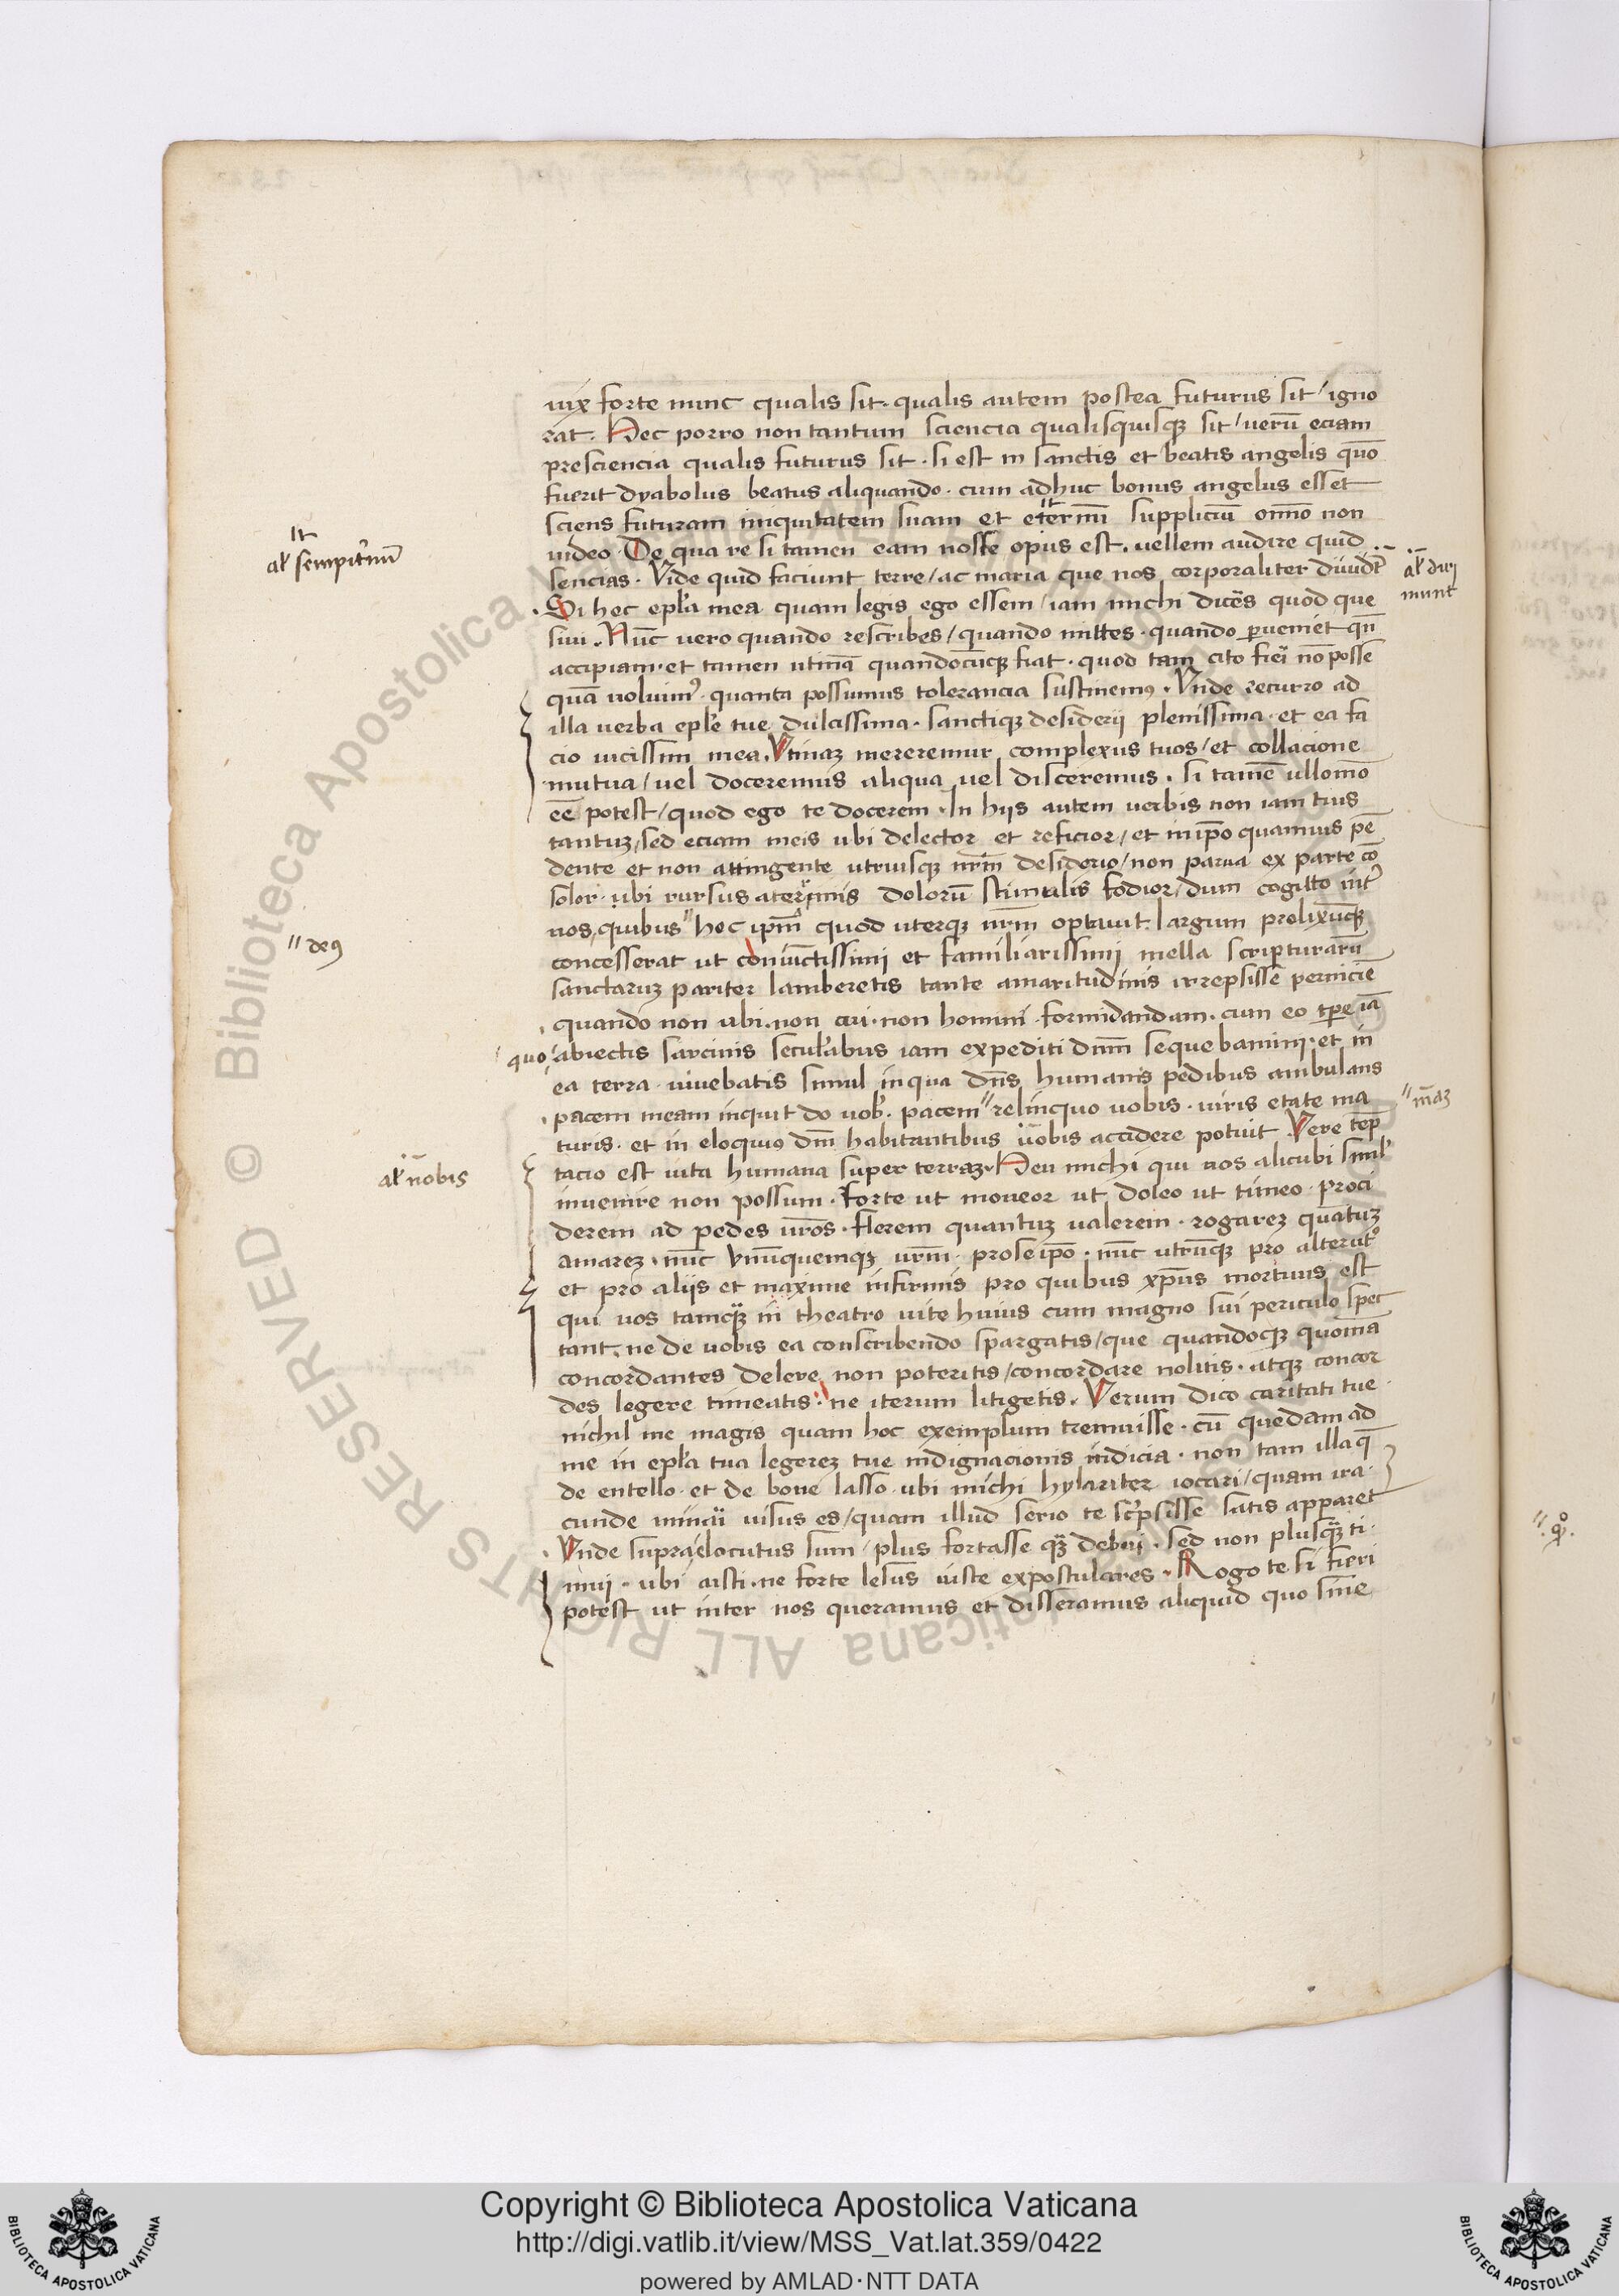 uix forte nunc qualis sit. qualis autem postea futurus sit / igno
rat. Hec porro non tantum sciencia qualisquisqȝ sit / uerū eciam
presciencia qualis futurus sit. si est in sanctis et beatis angelis quō
fuerit dyabolus beatus aliquando. cum adhuc bonus angelus esset
sciens futuram iniquitatem suam et eternū suppliciū omīo non
uideo. De qua re si tamen eam nosse opus est. uellem audire quid
sencias. Vide quid faciunt terre / ac maria que nos corporaliter
Si hec epl̄a mea quam legis ego essem / iam michi dicēs quod que
siui. Nūc uero quando rescribes / quando mittes. quando perueniet qn̄
accipiam. et tamen utinā quandocūqȝ fiat. quod tam cito fieri nō posse
quā uoluim9. quanta possumus tolerancia sustinem9. Vnde recurro ad
illa uerba epl̄e tue dulcissima. sanctiqȝ desiderij plenissima. et ea fa
cio uicissim mea. Vtinaȝ mereremur complexus tuos / et collacione
mutua / uel doceremus aliqua uel disceremus. si tamē ullomō
eē potest / quod ego te docerem. In hijs autem uerbis non iam tuis
tantuȝ / sed eciam meis ubi delector et reficior / et in ipō quamuis pē
dente et non attingente utriusqȝ nrm̄ desiderio / non parua ex parte cō
solor. ubi rursus acerrimis dolorū stimulis fodior / dum cogito int̄
uos, quibus " hoc ipm̄ quod uterqȝ nrm̄ optauit. largum prolixūqȝ
concesserat ut coniūctissimi et familiarissimi mella scripturarū
sanctaruȝ pariter lamberetis tante amaritudinis irrepsisse perniciē
quando non ubi. non cui. non homini formidandam. cum eo tp̄e iā
quo abiectis sarcinis secul'abus iam expediti dnm̄ sequebamini. et in
ea terra uiuebatis simul in qua dn̄s humanis pedibus ambulans
pacem meam inquit do uob'. pacem " relinquo uobis. uiris etate ma
turis. et in eloquio dm̄ habitantibus uobis accidere potuit. Vere tēp
tacio est uita humana super terraȝ. Heu michi qui uos alicubi simul
inuenire non possum. Forte ut moueor ut doleo ut timeo. proci
derem ad pedes uros. flerem quantuȝ ualerem. rogareȝ quātuȝ
amareȝ. nūc vnūquemqȝ urm̄. pro se ipō. nūc utrūqȝ pro alterut°
et pro alijs et maxime infirmis pro quibus xp̄us mortuus est
qui uos tamq̄ȝ in theatro uite huius cum magno sui periculo spec
tant. ne de uobis ea conscribendo spargatis / que quandoqȝ
concordantes delere non poteritis / concordare nolitis. atqȝ concor
des legere timeatis: ne iterum litigetis. Verum dico caritati tue
nichil me magis quam hoc exemplum tremuisse. cū quedam ad
me in epl̄a tua legereȝ tue indignacionis indicia. non tam illa q̄
de entello. et de boue lasso. ubi michi hylariter iocari / quam ira
cunde minari uisus es / quam illud serio te scripsisse satis apparet
Vnde supra elocutus sum / plus fortasse q̄ȝ debui. sed non plusq̄ȝ ti
mui. ubi aisti. ne forte lesus iuste expostulares. Rogo te si fieri
potest ut inter nos queramus et disseramus aliquid quo sine
al' sempit'nū
al' diri
munt
" de9
" meaȝ
al' nobis
Copyright © Biblioteca Apostolica Vaticana
http://digi.vatlib.it/view/MSS_Vat.lat.359/0422
powered by AMLAD·NTT DATA
BIBLIOTECA APOSTOLICA VATICANA
BIBLIOTECA APOSTOLICA VATICANA
© Biblioteca Apostolica Vaticana ALL RIGHTS RESERVED